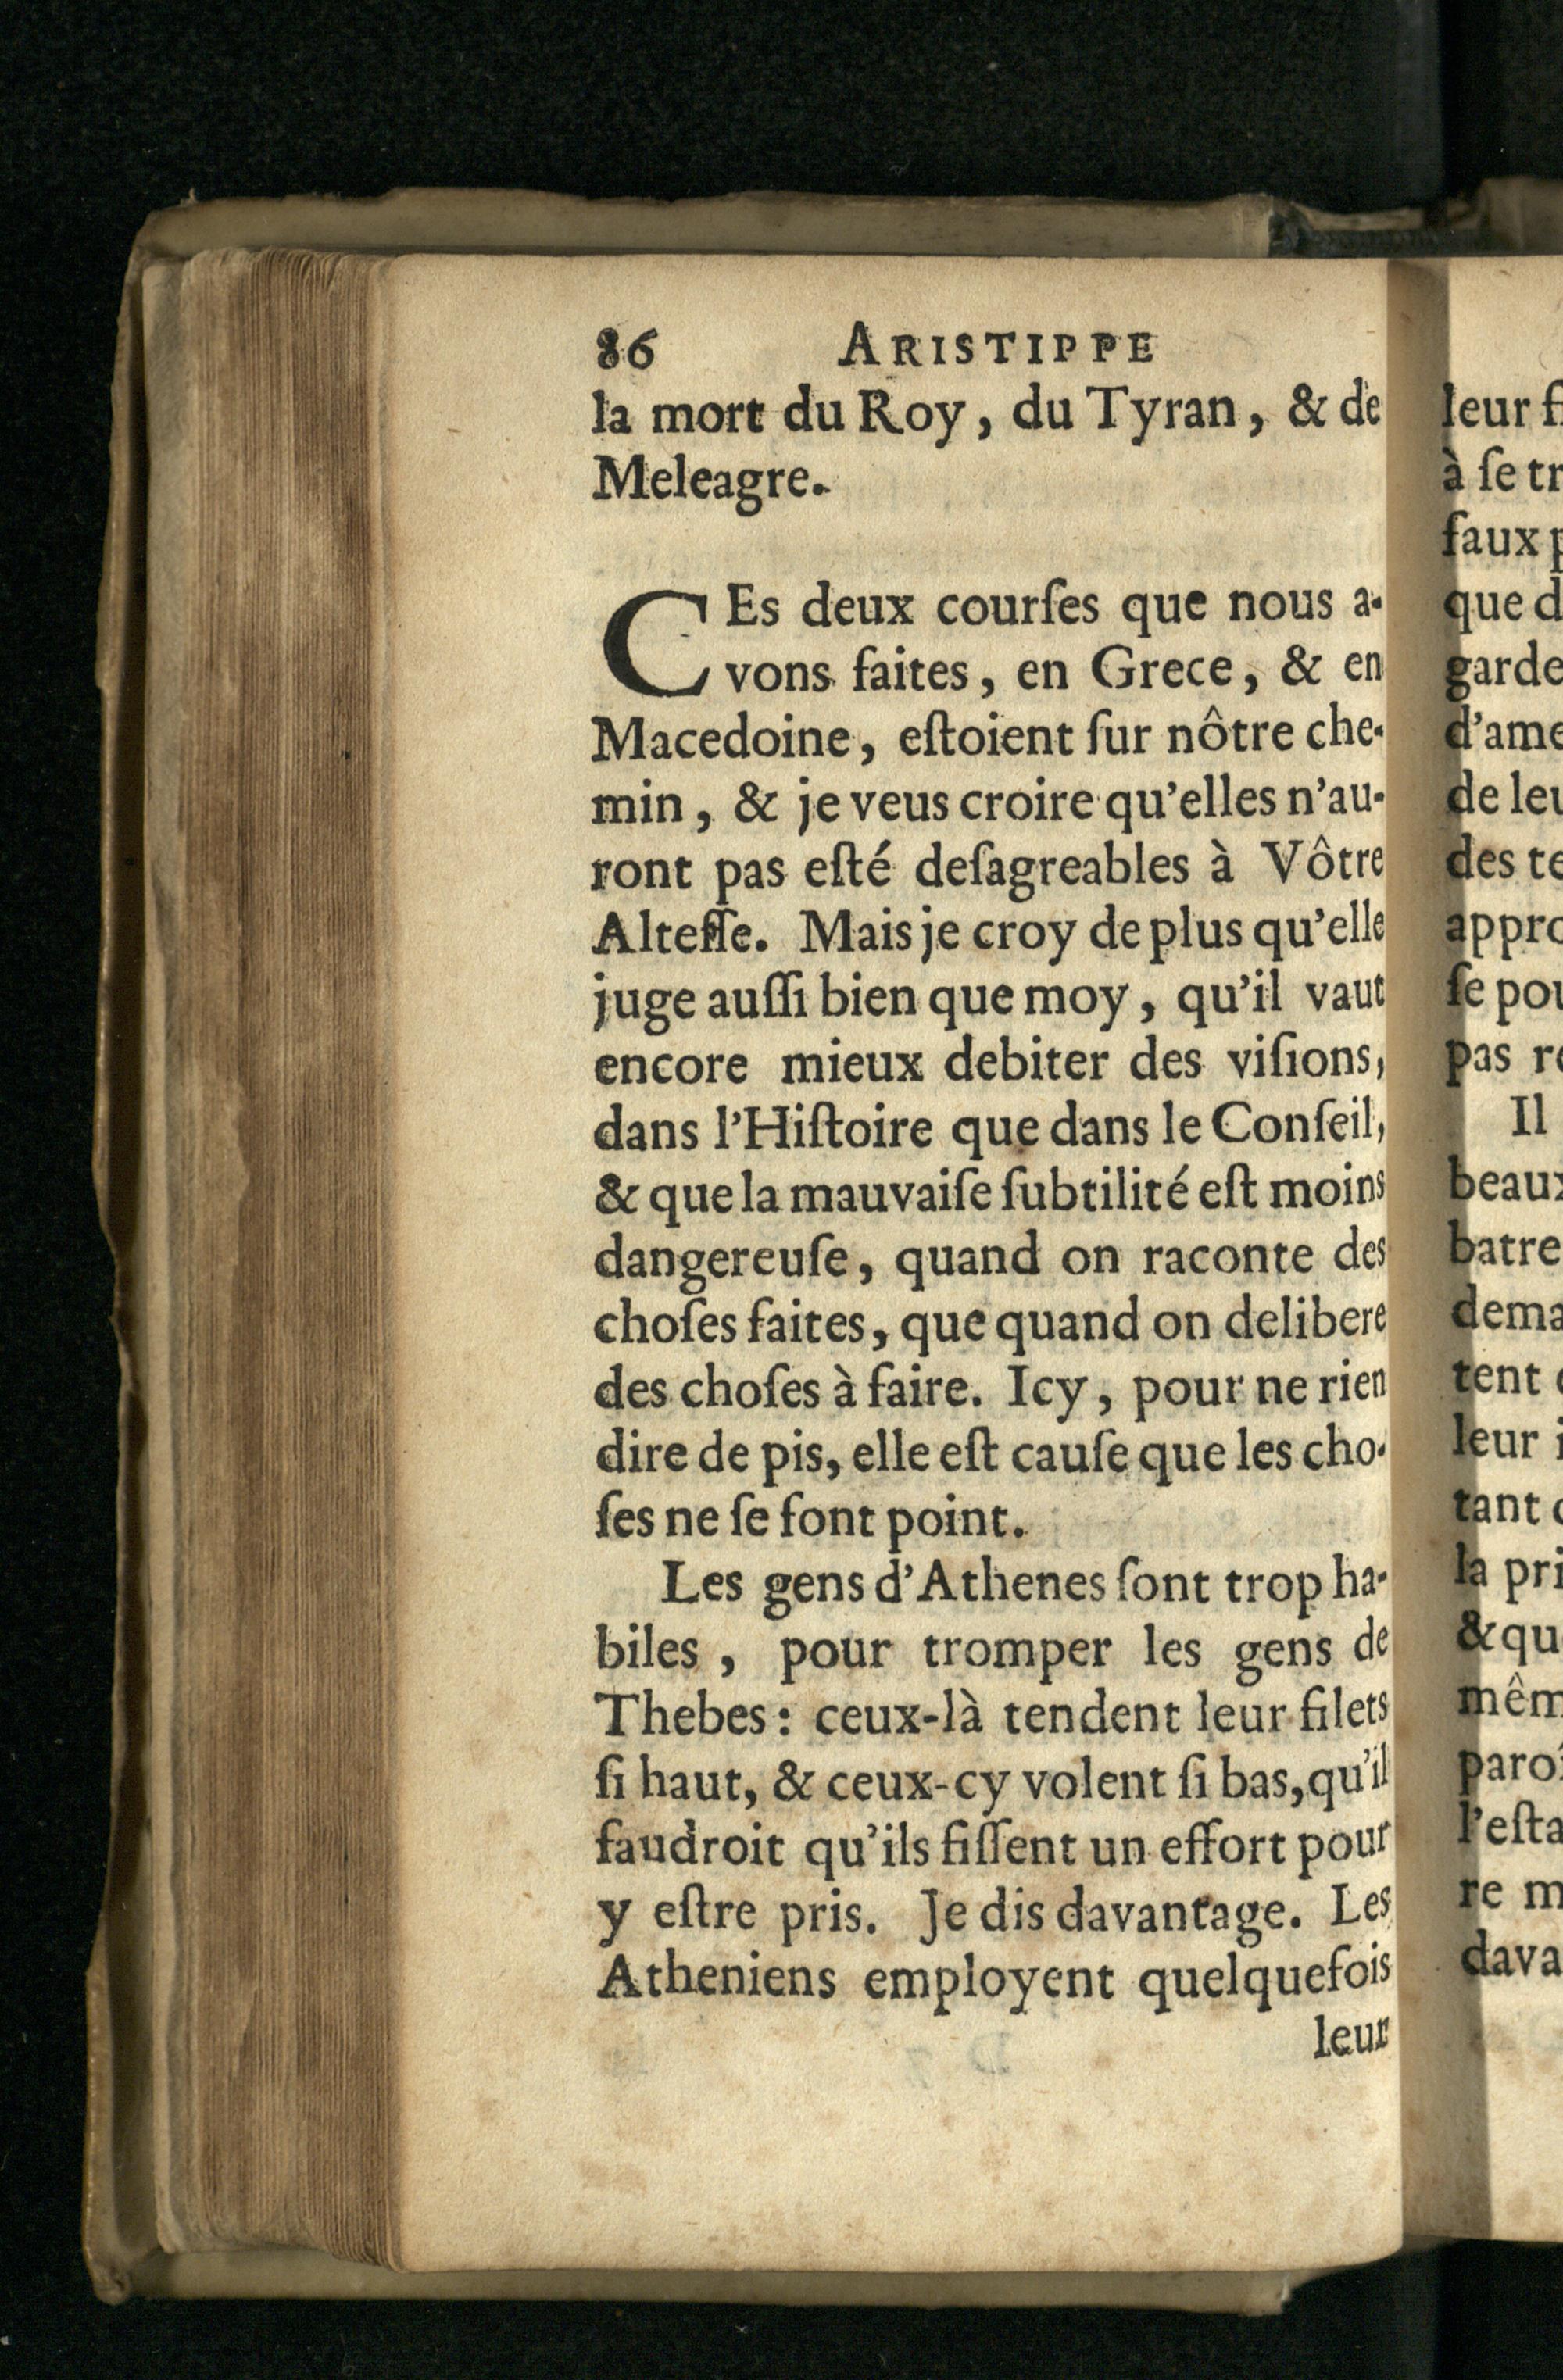 86 ARISTIPPE
la mort du Roy, du Tyran, & de
Meleagre.
CEs deux courſes que nous a-
vons faites, en Grece, & en
Macedoine, eſtoient ſur nôtre che-
min, & je veus croire qu'elles n'au-
ront pas eſté deſagreables à Vôtre
Alteſſe. Mais je croy de plus qu'elle
juge auſſi bien que moy, qu'il vaut
encore mieux debiter des viſions,
dans l'Hiſtoire que dans le Conſeil,
& que la mauvaiſe ſubtilité eſt moins
dangereuſe, quand on raconte des
choſes faites, que quand on delibere
des choſes à faire. Icy, pour ne rien
dire de pis, elle eſt cauſe que les cho-
ſes ne ſe font point.
Les gens d'Athenes ſont trop ha-
biles, pour tromper les gens de
Thebes: ceux-là tendent leur filets
ſi haut, & ceux-cy volent ſi bas, qu'il
faudroit qu'ils fiſſent un effort pour
y eſtre pris. Je dis davantage. Les
Atheniens employent quelquefois
leur
leur
à ſe
faux
que
garde
d'ame
de
des
ſe
pas
Il
batre
tent
leur
tant
la
& qu
re
dava